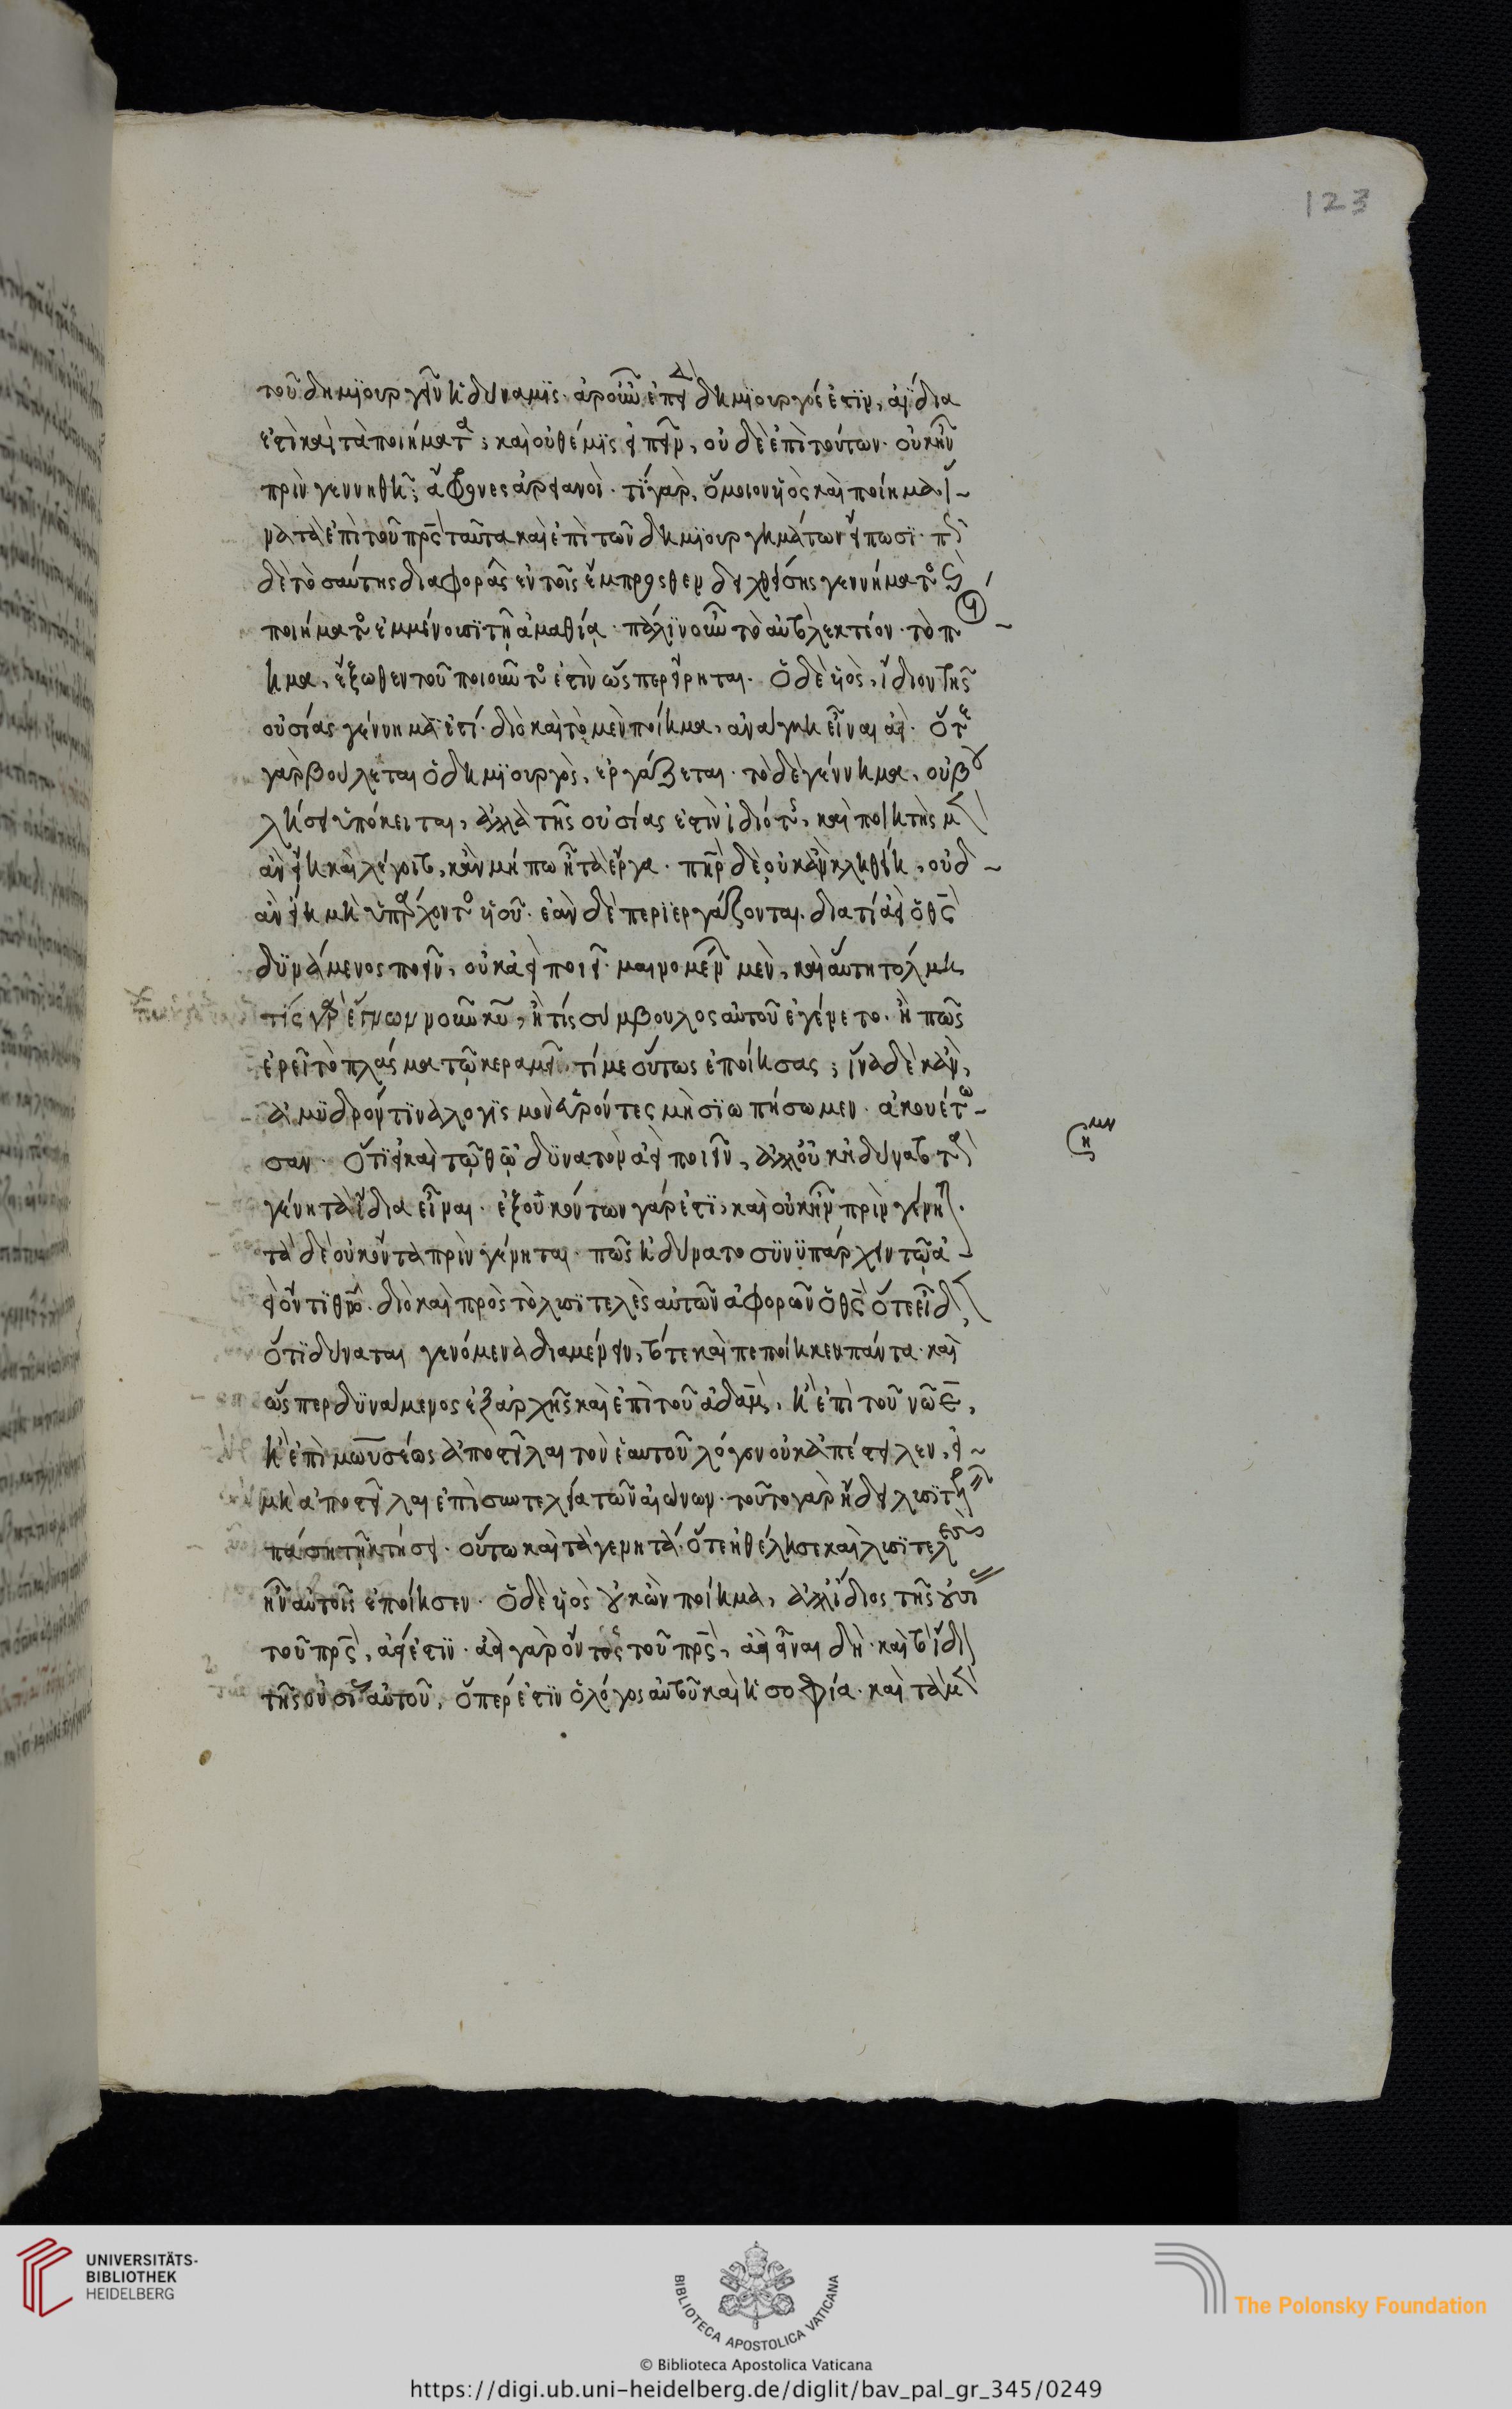 τοῦ δημϊουργεῖν ἡ δύναμϊς· ἀροῦν ἐπεὶδὴ δημϊουργός ἐστϊν, ἀΐδια
ἐστὶ καὶ τὰ ποιήματα; καὶ οὐ θέμϊς εἰπεῖν, οὐδὲ ἐπὶ τούτων· οὐκ ἦν
πρὶν γεννηθῆ; ἄφρονες ἀρειανοὶ· τί γὰρ, ὅμοιον υἱὸς καὶ ποίημα· ἵ-
να τὰ ἐπὶ τοῦ πρς̄ ταῦτα καὶ ἐπὶ τῶν δημϊουργημάτων εἴπωσϊ· πῶς
δὲ τοσαύτης διαφορᾶς ἐν τοῖς ἔμπροσθεν δειχθείσης γεννήματος καὶ
ποιήματος ἐμμένουσϊ τῆ ἀμαθία· πάλϊν οὖν τὸ αὐτὸ λεκτέον· τὸ ποί-
ημα, ἔξωθεν τοῦ ποιοῦντος ἐστὶν ὥσπερ εἴρηται. ὁ δὲ υἱὸς, ἴδιον τῆς
οὐσίας γέννημά ἐστί· διὸ καὶ τὸ μὲν ποίημα, ἀνάγκη εἶναι ἀεὶ· ὅτε
γὰρ βούλεται ὁ δημϊουργὸς, ἐργάζεται· τὸ δὲ γέννημα, οὐ βου
λήσει ὑπόκειται, ἀλλὰ τῆς οὐσίας ἐστὶν ἰδιότης, καὶ ποιητὴς μὲν
ἂν εἴη καὶ λέγοιτο, κἂν μήπω ἦ τὰ ἔργα· πηρ̄ δὲ οὐκ ἂν κληθείη, οὐδ-
ἂν εἴη μὴ ὑπάρχοντος υἱοῦ· ἐὰν δὲ περϊεργάζονται διατί ἀεὶ ὁ θς̄
δϋνάμενος ποιεῖν, οὐκ ἀεὶ ποιεῖ· μαινομένων μὲν, καὶ αὕτη τόλμη
τίς γὰρ ἔγνω νοῦν κῡ, ἢ τίς σύμβουλος αὐτοῦ ἐγένετο· ἢ πῶς
ἐρεῖ τὸ πλάσμα τῶ κεραμεῖ, τί με οὕτως ἐποίησας; ἵνα δὲ κἂν
ἀμϋδρόν τϊνα λογϊσμὸν εὑρόντες μὴ σϊωπήσωμεν· ἀκουέτω-
σαν· ὅτϊ εἰ καὶ τῶ θῶ δϋνατὸν ἀεὶ ποιεῖν, ἀλλ' οὐκ ἠδύνατο τὰ
γένητὰ ἴδια εἶναι· ἐξ οὐκ ὄντων γὰρ ἐστϊ, καὶ οὐκ ἦν πρὶν γένηται·
τὰ δὲ οὐκ ὄντα πρὶν γένηται· πῶς ἠδύνατο σϋνϋπάρχειν τῶ ἀ-
εὶ ὄντϊ θῶ. διὸ καὶ πρὸς τὸ λυσϊτελὲς αὐτῶν ἀφορῶν ὁ θς̄ ὅτε εἶδεν
ὅτϊ δύναται γενόμενα διαμένειν, τότε καὶ πεποίηκεν πάντα· καὶ
ὥσπερ δϋνάμενος ἐξ ἀρχῆς καὶ ἐπὶ τοῦ ἀδὰμ, ἢ ἐπὶ τοῦ νῶε,
ἢ ἐπὶ μωϋσέως ἀποστεῖλαι τὸν ἑαυτοῦ λόγον οὐκ ἀπέστειλεν, εἰ-
μὴ ἀποστεῖλαι ἐπὶ συντελεία τῶν αἰώνων· τοῦτο γὰρ ἤδει λυσϊτελεῖν
πάση τῆ κτίσει· οὕτω καὶ τὰ γενητὰ ὅτε ἠθέλησε καὶ λυσϊτελὲς
ἦν αὐτοῖς ἐποίησεν· ὁ δὲ υἱὸς οὐκ ὢν ποίημα, ἀλλ' ἴδιος τῆς οὐσί
τοῦ πρς̄, ἀεὶ ἐστϊν· ἀεὶ γὰρ ὄντος τοῦ πρς̄, ἀεὶ εἶναι δεῖ· καὶ τὸ ἴδιον
τῆς οὐσίας αὐτοῦ, ὅπερ ἐστϊν ὁ λόγος αὐτοῦ καὶ ἡ σοφία· καὶ τὰ μὲν
123
UNIVERSITÄTS-
BIBLIOTHEK
HEIDELBERG
BIBLIOTECA APOSTOLICA VATICANA
The Polonsky Foundation
© Biblioteca Apostolica Vaticana
https://digi.ub.uni-heidelberg.de/diglit/bav_pal_gr_345/0249